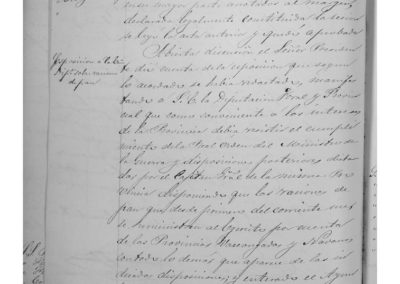 en su mayor parte anotados al margen,
declarada legalmente constituida la sesion
se leyó la acta anterior y quedó aprobada
Esposicion a la
Dip.n sobre raciones
de pan
Abierta discusion el Señor Presiden
te dió cuenta de la esposicion que segun
lo acordado se habia redactado, manifes
tando a S.E. la Diputacion Foral y Provin
cial que como conveniente a los intereses
de la Provincia debia resistir el cumpli
miento de la Real orden del Ministro de
la Guerra y disposiciones posteriores dicta
das por el Capitan Gral. de la misma Pro
vincia disponiendo que las raciones de
pan que desde primero del corriente mes
se suministren al Ejercito por cuenta
de las Provincias Vascongadas y Navarra
con todo lo demas que aparece de las in
dicadas disposiciones; y enterado el Ayun